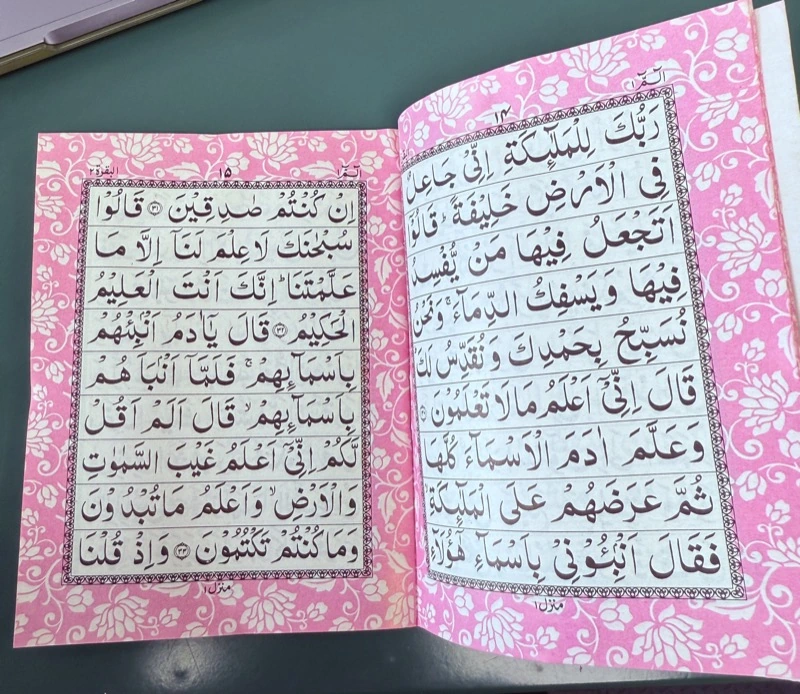 الٓمّٓ ١
١٤
رَبُّكَ لِلْمَلٰٓئِكَةِ اِنِّيْ جَاعِلٌ
فِي الْاَرْضِ خَلِيْفَةً ؕ قَالُوْٓا
اَتَجْعَلُ فِيْهَا مَنْ يُّفْسِدُ
فِيْهَا وَيَسْفِكُ الدِّمَآءَ ۚ وَنَحْنُ
نُسَبِّحُ بِحَمْدِكَ وَنُقَدِّسُ لَكَ ؕ
قَالَ اِنِّيْٓ اَعْلَمُ مَا لَا تَعْلَمُوْنَ ۝۳۰
وَعَلَّمَ اٰدَمَ الْاَسْمَآءَ كُلَّهَا
ثُمَّ عَرَضَهُمْ عَلَى الْمَلٰٓئِكَةِ ۙ
فَقَالَ اَنْۢبِـُٔوْنِيْ بِاَسْمَآءِ هٰٓؤُلَآءِ
منزل ١
الٓمّٓ ١
١٥
البقرة ٢
اِنْ كُنْتُمْ صٰدِقِيْنَ ۝۳۱ قَالُوْا
سُبْحٰنَكَ لَا عِلْمَ لَنَآ اِلَّا مَا
عَلَّمْتَنَا ؕ اِنَّكَ اَنْتَ الْعَلِيْمُ
الْحَكِيْمُ ۝۳۲ قَالَ يٰٓاٰدَمُ اَنْۢبِئْهُمْ
بِاَسْمَآئِهِمْ ۚ فَلَمَّآ اَنْۢبَاَهُمْ
بِاَسْمَآئِهِمْ ۙ قَالَ اَلَمْ اَقُلْ
لَّكُمْ اِنِّيْٓ اَعْلَمُ غَيْبَ السَّمٰوٰتِ
وَالْاَرْضِ ۙ وَاَعْلَمُ مَا تُبْدُوْنَ
وَمَا كُنْتُمْ تَكْتُمُوْنَ ۝۳۳ وَاِذْ قُلْنَا
منزل ١